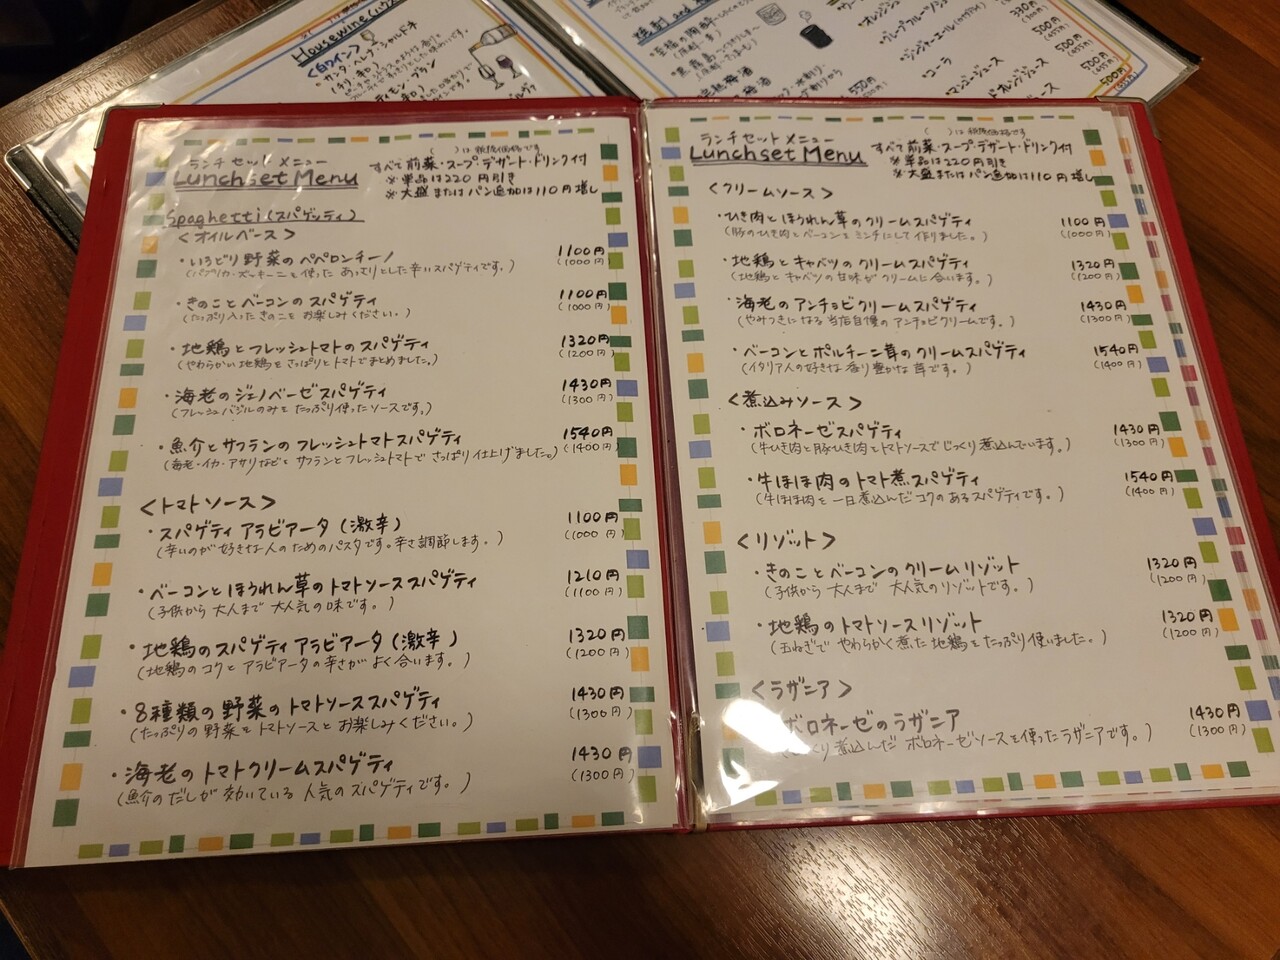 Housewine(ハウス
<白ワイン>
サンタ・ヘレナ・シャルドネ
(チリ・辛口)
コーラ
ジンジャーエール(カナダドライ)
500円
(455円)
ランチセットメニュー
( )は税抜価格です
Lunchset Menu
すべて前菜・スープ・デザート・ドリンク付
※単品は220円引き
※大盛またはパン追加は110円増し
Spaghetti(スパゲッティ)
<オイルベース>
・いろどり野菜のペペロンチーノ 1100円
(パプリカ・ズッキーニを使った あっさりとした辛いスパゲティです。) (1000円)
・きのことベーコンのスパゲティ 1100円
(たっぷり入ったきのこをお楽しみください。) (1000円)
・地鶏とフレッシュトマトのスパゲティ 1320円
(やわらかい地鶏をさっぱりとトマトでまとめました。) (1200円)
・海老のジェノベーゼスパゲティ 1430円
(フレッシュバジルのみをたっぷり使ったソースです。) (1300円)
・魚介とサフランのフレッシュトマトスパゲティ 1540円
(海老・イカ・アサリなどをサフランとフレッシュトマトでさっぱり仕上げました。) (1400円)
<トマトソース>
・スパゲティアラビアータ(激辛) 1100円
(辛いのが好きな人のためのパスタです。辛さ調節します。) (1000円)
・ベーコンとほうれん草のトマトソーススパゲティ 1210円
(子供から大人まで 大人気の味です。) (1100円)
・地鶏のスパゲティアラビアータ(激辛) 1320円
(地鶏のコクとアラビアータの辛さがよく合います。) (1200円)
・8種類の野菜のトマトソーススパゲティ 1430円
(たっぷりの野菜をトマトソースとお楽しみください。) (1300円)
・海老のトマトクリームスパゲティ 1430円
(魚介のだしが効いている人気のスパゲティです。) (1300円)
ランチセットメニュー
( )は税抜価格です
Lunchset Menu
すべて前菜・スープ・デザート・ドリンク付
※単品は220円引き
※大盛またはパン追加は110円増し
<クリームソース>
・ひき肉とほうれん草のクリームスパゲティ 1100円
(豚のひき肉とベーコンをミンチにして作りました。) (1000円)
・地鶏とキャベツのクリームスパゲティ 1320円
(地鶏とキャベツの甘味がクリームに合います。) (1200円)
・海老のアンチョビクリームスパゲティ 1430円
(やみつきになる当店自慢のアンチョビクリームです。) (1300円)
・ベーコンとポルチーニ茸のクリームスパゲティ 1540円
(イタリア人の好きな香り豊かな茸です。) (1400円)
<煮込みソース>
・ボロネーゼスパゲティ 1430円
(牛ひき肉と豚ひき肉とトマトソースでじっくり煮込んでいます。) (1300円)
・牛ほほ肉のトマト煮スパゲティ 1540円
(牛ほほ肉を一日煮込んだコクのあるスパゲティです。) (1400円)
<リゾット>
・きのことベーコンのクリームリゾット 1320円
(子供から大人まで 大人気のリゾットです。) (1200円)
・地鶏のトマトソースリゾット 1320円
(玉ねぎでやわらかく煮た地鶏をたっぷり使いました。) (1200円)
<ラザニア>
ボロネーゼのラザニア 1430円
くり煮込んだボロネーゼソースを使ったラザニアです。) (1300円)